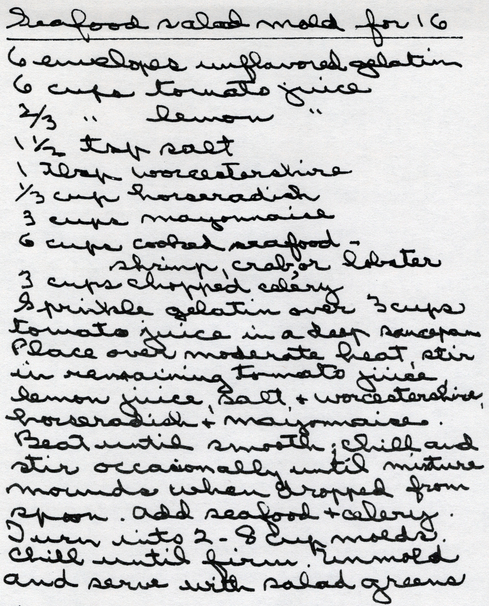 Seafood salad mold for 16
6 envelopes unflavored gelatin
6 cups tomato juice
2/3 " lemon "
1 1/2 tsp salt
1 tbsp worcestershire
1/3 cup horseradish
3 cups mayonnaise
6 cups cooked seafood -
shrimp, crab, or lobster
3 cups chopped celery
Sprinkle gelatin over 3 cups
tomato juice in a deep saucepan
Place over moderate heat, stir
in remaining tomato juice,
lemon juice, salt, + worcestershire,
horseradish + mayonnaise.
Beat until smooth; chill and
stir occasionally until mixture
mounds when dropped from
spoon. Add seafood + celery.
Turn into 2 - 8 cup molds.
Chill until firm. Unmold
and serve with salad greens